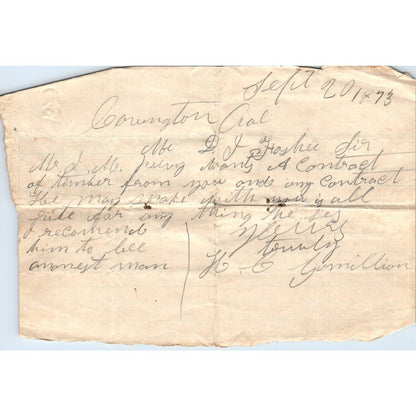 Sept 20 1873
Covington Cal
Mr D J Foshee Sir
Mr J. M. wants A Contract
of timber from you and any contract
the may make with you is all
rite for any thing the
I recomend
him to bee
an onest man
Yours
truly
H C Gomillion